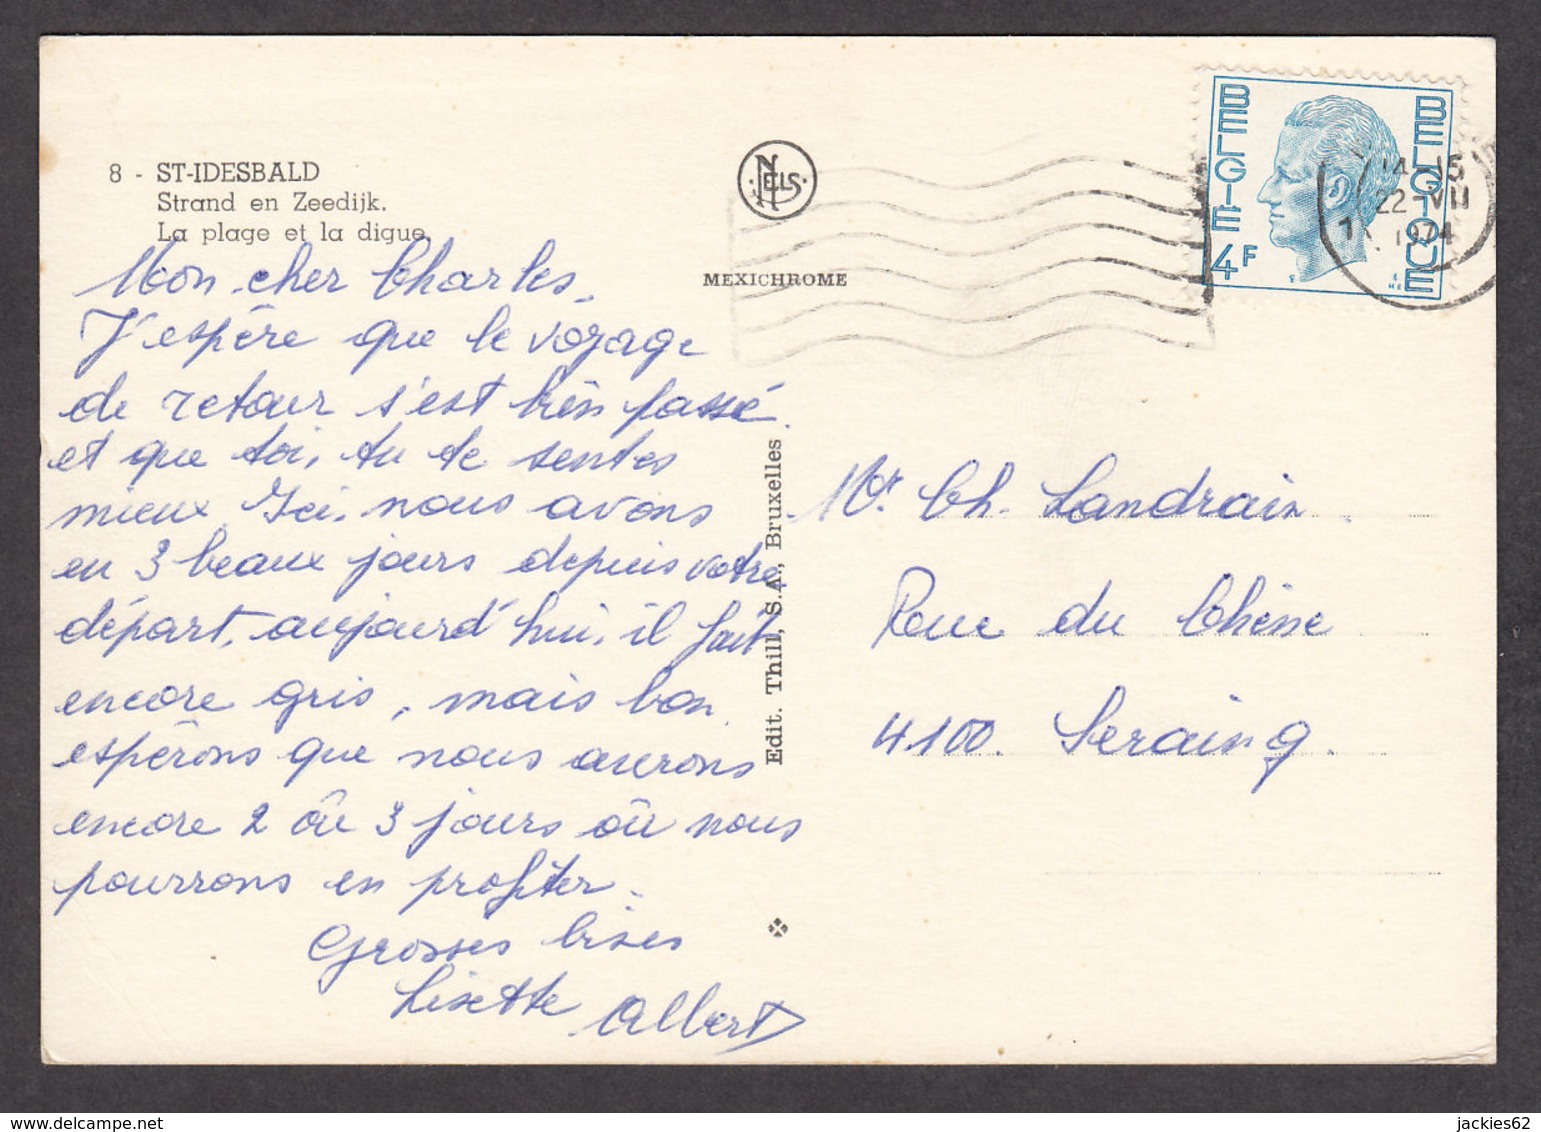 8 - ST-IDESBALD
Strand en Zeedijk.
La plage et la digue.
Mon cher Charles.
J'espère que le voyage
de retour s'est très passé
et que toi, tu te sentes
mieux. Ici, nous avons
eu 3 beaux jours depuis votre
départ, aujourd'hui, il fait
encore gris, mais bon
espérons que nous aurons
encore 2 où 3 jours où nous
pourrons en profiter.
Grosses bises
Lisette Albert
NELS
MEXICHROME
Edit. Thill, S.A., Bruxelles
BELGIE
BELGIQUE
4F
14-15
22-VII
1974
Mr. Ch. Landrain.
Rue du Chêne
4100. Seraing.
jackies62